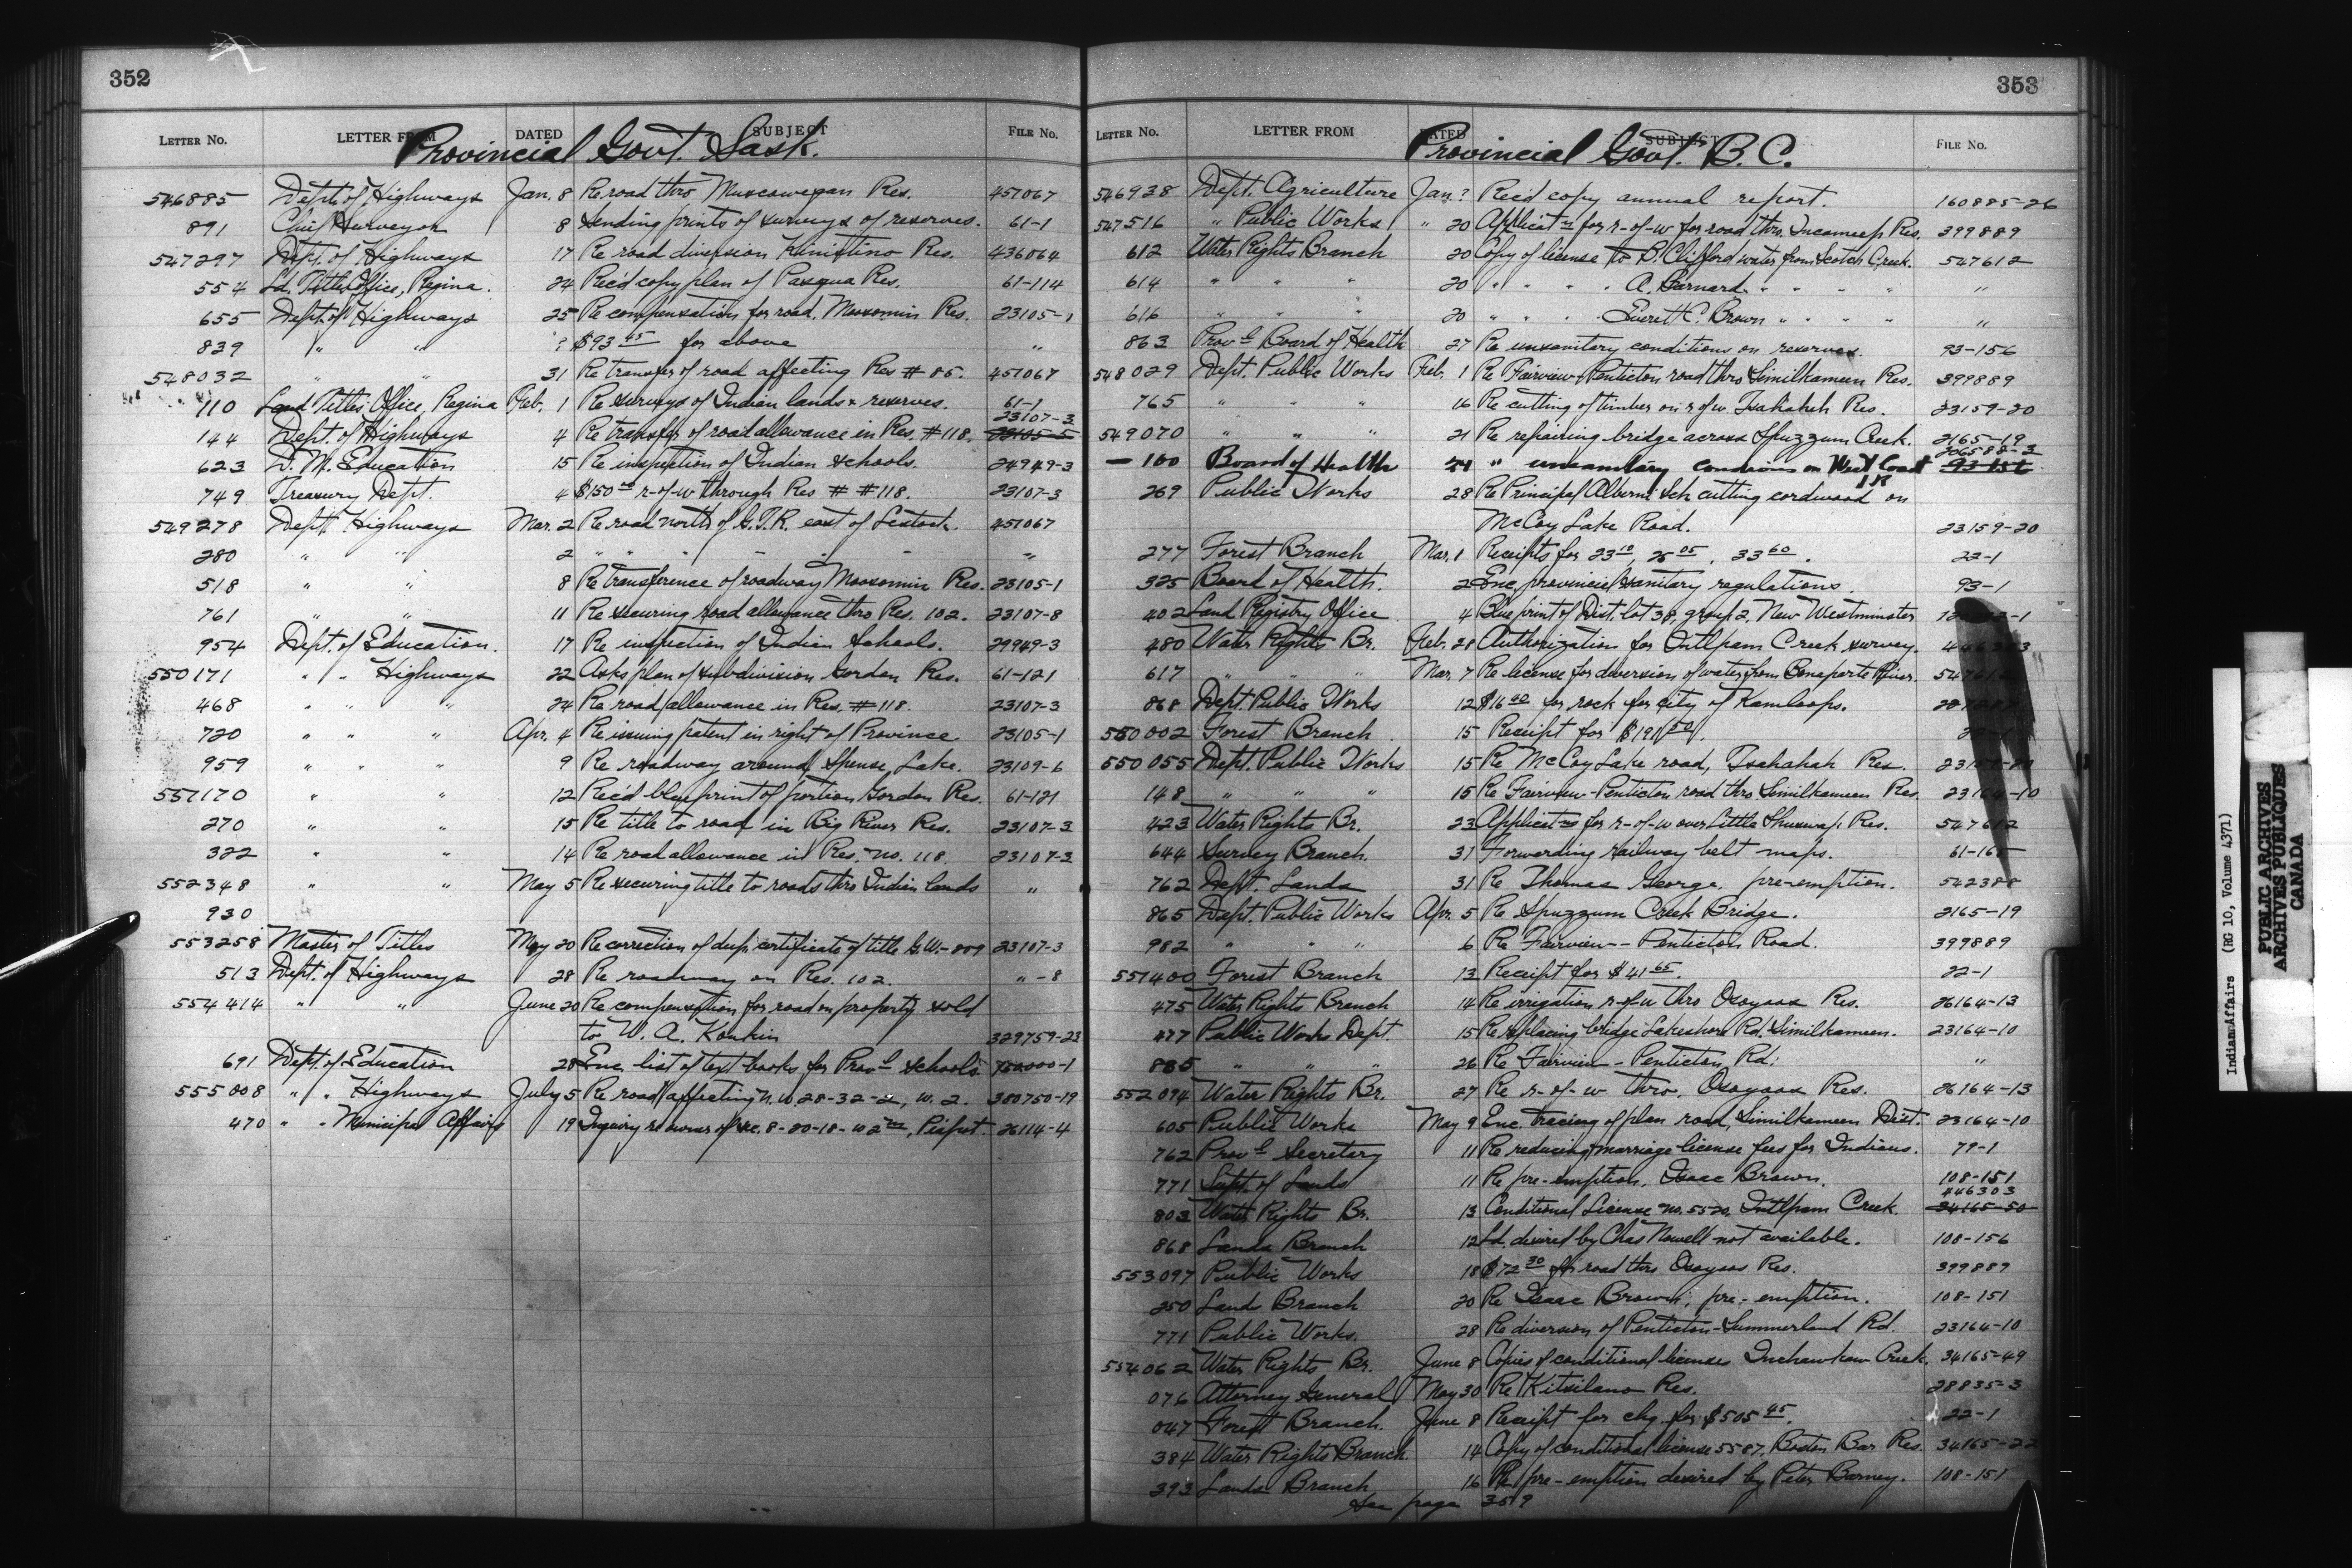 352
LETTER NO. LETTER FROM DATED SUBJECT FILE NO.
Provincial Govt. Sask.
546885 Dept. of Highways Jan. 8 Re road thro Muscowegan Res. 457067
891 Chief Surveyor 8 Sending prints of surveys of reserves. 61-1
547297 Dept. of Highways 17 Re road diversion Kinistino Res. 436064
554 Ld. Titles Office, Regina. 24 Rec'd copy plan of Pasqua Res. 61-114
655 Dept. of Highways 25 Re compensation for road, Moosomin Res. 23105-1
839 " " ? $93 45 for above "
548032 " " 31 Re transfer of road affecting Res # 85. 457067
110 Land Titles Office, Regina Feb. 1 Re surveys of Indian lands & reserves. 61-1
144 Dept. of Highways 4 Re transfer of road allowance in Res. #118. 23107-3 23105-5
623 D. M. Education 15 Re inspection of Indian schools. 24949-3
749 Treasury Dept. 4 $150 r-of-w through Res # #118. 23107-3
549278 Dept. Highways Mar. 2 Re road north of G.T.R. east of Lestock. 457067
280 " " 2 " " " " " " "
518 " " 8 Re transference of roadway Moosomin Res. 23105-1
761 " " 11 Re securing road allowance thro Res. 102. 23107-8
954 Dept. of Education. 17 Re inspection of Indian Schools. 29949-3
550171 " " Highways 22 Asks plan of subdivision Gordon Res. 61-121
468 " " " 24 Re road allowance in Res. #118. 23107-3
720 " " " Apr. 4 Re issuing patent in right of Province 23105-1
959 " " " 9 Re roadway around Spense Lake. 23109-6
551170 " " 12 Rec'd blueprint of portion Gordon Res. 61-121
270 " " 15 Re title to road in Big River Res. 23107-3
322 " " 14 Re road allowance in Res. no. 118. 23107-3
552348 " " May 5 Re securing title to roads thro Indian lands "
930
553258 Master of Titles May 20 Re correction of dup. certificate of title G.W.-809 23107-3
513 Dept. of Highways 28 Re roadway on Res. 102. " -8
554414 " " June 20 Re compensation for road on property sold
to W. A. Konkin 329759-23
691 Dept. of Education 28 Enc. list of text books for Prov'l schools
555008 " " Highways July 5 Re road affecting n.w. 28-32-2, w. 2. 380750-19
470 " " Municipal Affairs 19 Inquiry re owner of sec. 8-20-18-w 2nd, Piapot. 26114-4
353
LETTER NO. LETTER FROM DATED SUBJECT FILE NO.
Provincial Govt. B.C.
546938 Dept. Agriculture Jan. ? Rec'd copy annual report. 160885-26
547516 " Public Works " 20 Applicatn for r-of-w for road thro. Incameep Res. 399889
612 Water Rights Branch 20 Copy of license to P. Clifford water from Scotch Creek. 547612
614 " " " 20 " " " " A. Barnard " " " " "
616 " " " 20 " " " " Everett C. Brown " " " " "
863 Prov'l Board of Health 27 Re unsanitary conditions on reserves. 93-156
548029 Dept. Public Works Feb. 1 Re Fairview-Penticton road thro Similkameen Res. 399889
765 " " " 16 Re cutting of timber on r of w Tsahaheh Res. 23159-20
549070 " " " 21 Re repairing bridge across Spuzzum Creek. 2165-19
— 100 Board of Health 24 " unsanitary conditions on West Coast IR 206588-3 93-156
269 Public Works 28 Re Principal Alberni Sch cutting cordwood on
McCoy Lake Road. 23159-20
277 Forest Branch Mar. 1 Receipts for 23 10, 25 05, 33 60. 22-1
325 Board of Health. 2 Enc. provincial sanitary regulations. 93-1
402 Land Registry Office 4 Blue print of Dist. lot 38, group 2, New Westminster
480 Water Rights Br. Feb. 28 Authorization for Intlpam Creek survey.
617 " " " Mar. 7 Re license for diversion of water from Bonaparte River.
868 Dept. Public Works 12 $16 40 for rock for city of Kamloops.
550002 Forest Branch 15 Receipt for $191 50.
550055 Dept. Public Works 15 Re McCoy Lake road, Tsahahah Res.
148 " " " 15 Re Fairview-Penticton road thro Similkameen Res. 23164-10
423 Water Rights Br. 23 Applicatn for r-of-w over Little Shuswap Res. 547612
644 Survey Branch. 31 Forwarding railway belt maps.
762 Dept. Lands 31 Re Thomas George. pre-emption. 542388
865 Dept. Public Works Apr. 5 Re Spuzzum Creek Bridge. 2165-19
982 " " " 6 Re Fairview - Penticton Road. 399889
551400 Forest Branch 13 Receipt for $41 65. 22-1
475 Water Rights Branch 14 Re irrigation r-of-w thro Osoyoos Res. 26164-13
477 Public Works Dept. 15 Re replacing bridge Lakeshore Rd. Similkameen. 23164-10
885 " " " 26 Re Fairview - Penticton Rd. "
552094 Water Rights Br. 27 Re r-of-w thro. Osoyoos Res. 26164-13
605 Public Works May 9 Enc. tracing of plan road, Similkameen Dist. 23164-10
762 Prov'l Secretary 11 Re reducing marriage license fees for Indians. 79-1
771 Supt. of Lands 11 Re pre-emption, Isaac Brown. 108-151
803 Water Rights Br. 13 Conditional License no. 5520, Intlpam Creek. 446303 34165-50
868 Lands Branch 12 Ld. desired by Chas Nowell not available. 108-156
553097 Public Works 18 $72 30 for road thro Osoyoos Res. 399889
250 Land Branch 20 Re Isaac Brown, pre-emption. 108-151
771 Public Works. 28 Re diversion of Penticton-Summerland Rd. 23164-10
554062 Water Rights Br. June 8 Copies of conditional licenses Inchawkaw Creek. 34165-49
076 Attorney General May 30 Re Kitsilano Res. 28835-3
047 Forest Branch. June 8 Receipt for chq. for $505 45. 22-1
384 Water Rights Branch. 14 Copy of conditional license 5587, Boston Bar Res. 34165-22
393 Lands Branch 16 Re pre-emption desired by Peter Barney. 108-151
See page 359
Indian Affairs (RG 10, Volume 4371)
PUBLIC ARCHIVES
ARCHIVES PUBLIQUES
CANADA